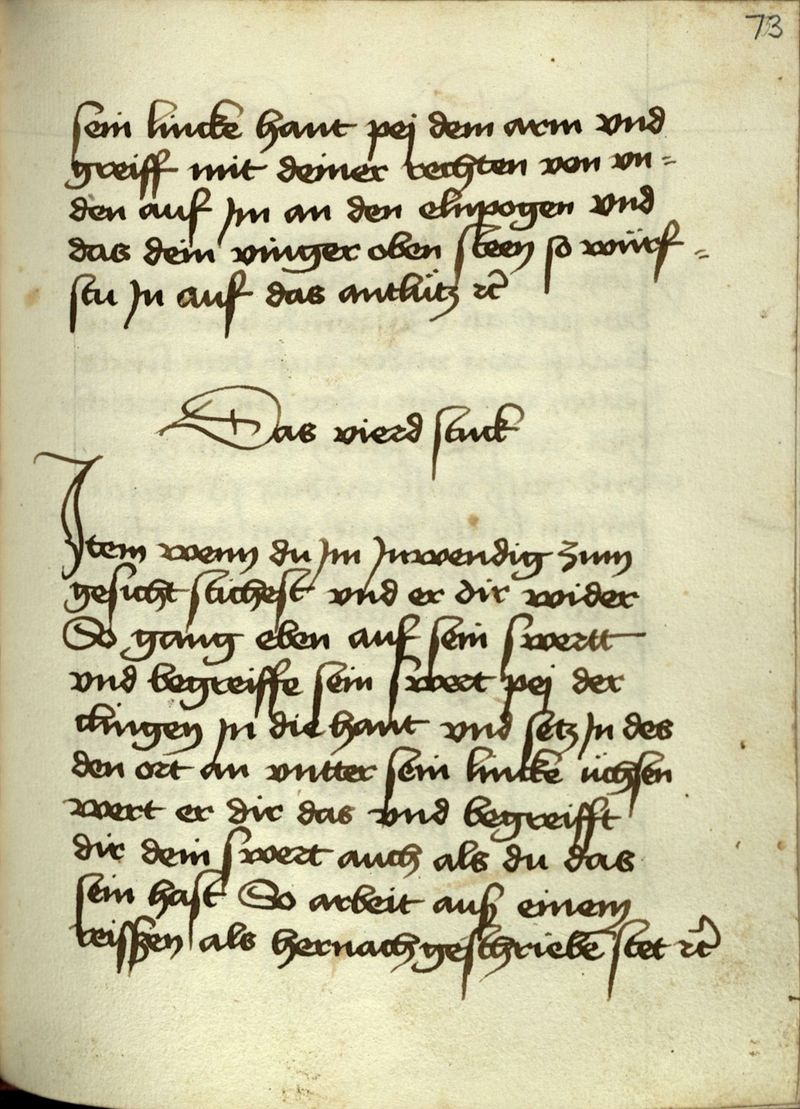 73
sein lincke hant pej dem arm vnd
greiff mit deiner rechten von vn=
den auf Im an den elnpogen vnd
das dein vinger oben steen so würf=
stu In auf das antlütz rc̄
Das vierd stuck
Item wenn du Im Inwendig zum
gesicht stichest vnd er dir wider
So gang eben auf sein swertt
vnd begreiffe sein swert pej der
clingen In die hant vnd setz In des
den ort an vntter sein lincke üchsen
wert er dir das vnd begreifft
dir dein swert auch als du das
sein hast So arbeit auß einem
reissen als hernach geschriebē stet rc̄